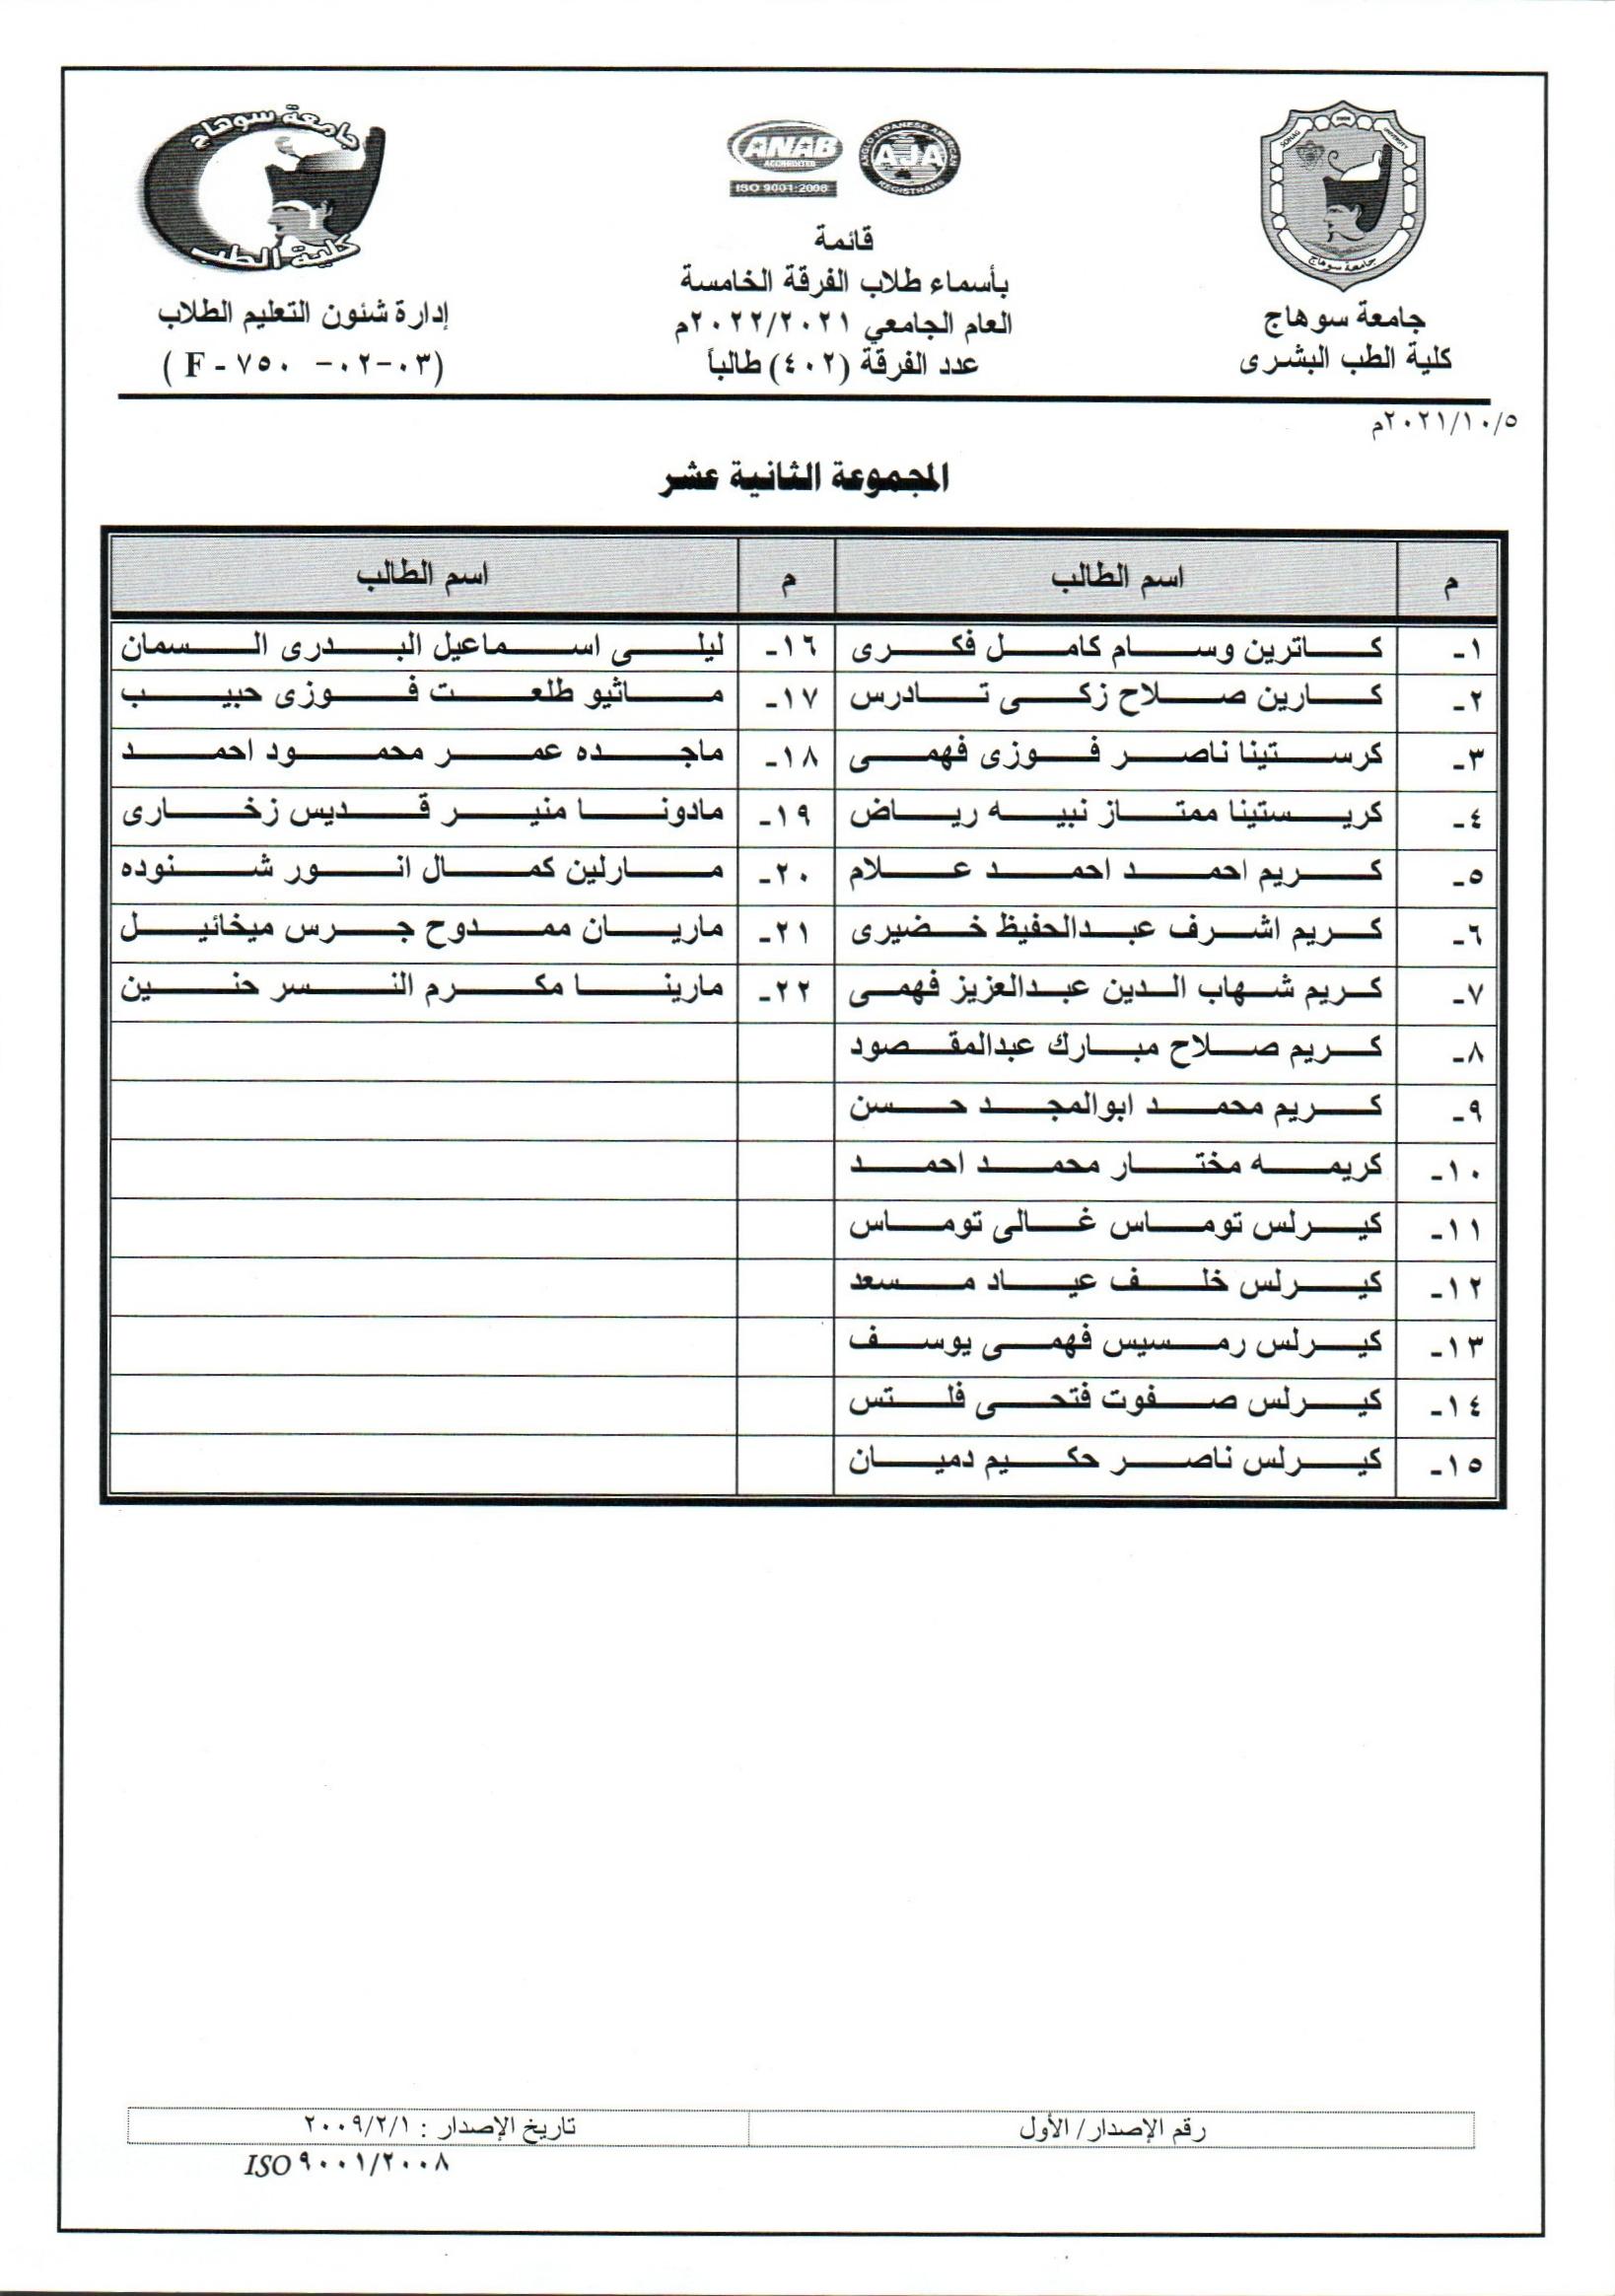 جامعة سوهاج
كلية الطب البشرى
SOHAG UNIVERSITY
جامعة سوهاج
ANAB
ACCREDITED
ISO 9001:2008
ANGLO JAPANESE AMERICAN
AJA
REGISTRARS
قائمة
بأسماء طلاب الفرقة الخامسة
العام الجامعي ٢٠٢٢/٢٠٢١م
عدد الفرقة (٤٠٢) طالباً
جامعة سوهاج
كلية الطب
إدارة شئون التعليم الطلاب
(F - ٧٥٠ -٠٢-٠٣)
٢٠٢١/١٠/٥م
المجموعة الثانية عشر
م اسم الطالب م اسم الطالب
١- كاترين وسام كامل فكرى ١٦- ليلى اسماعيل البدرى السمان
٢- كارين صلاح زكى تادرس ١٧- ماثيو طلعت فوزى حبيب
٣- كرستينا ناصر فوزى فهمى ١٨- ماجده عمر محمود احمد
٤- كريستينا ممتاز نبيه رياض ١٩- مادونا منير قديس زخارى
٥- كريم احمد احمد علام ٢٠- مارلين كمال انور شنوده
٦- كريم اشرف عبدالحفيظ خضيرى ٢١- ماريان ممدوح جرس ميخائيل
٧- كريم شهاب الدين عبدالعزيز فهمى ٢٢- مارينا مكرم النسر حنين
٨- كريم صلاح مبارك عبدالمقصود
٩- كريم محمد ابوالمجد حسن
١٠- كريمه مختار محمد احمد
١١- كيرلس توماس غالى توماس
١٢- كيرلس خلف عياد مسعد
١٣- كيرلس رمسيس فهمى يوسف
١٤- كيرلس صفوت فتحى فلتس
١٥- كيرلس ناصر حكيم دميان
رقم الإصدار/ الأول تاريخ الإصدار : ٢٠٠٩/٢/١
ISO ٩٠٠١/٢٠٠٨